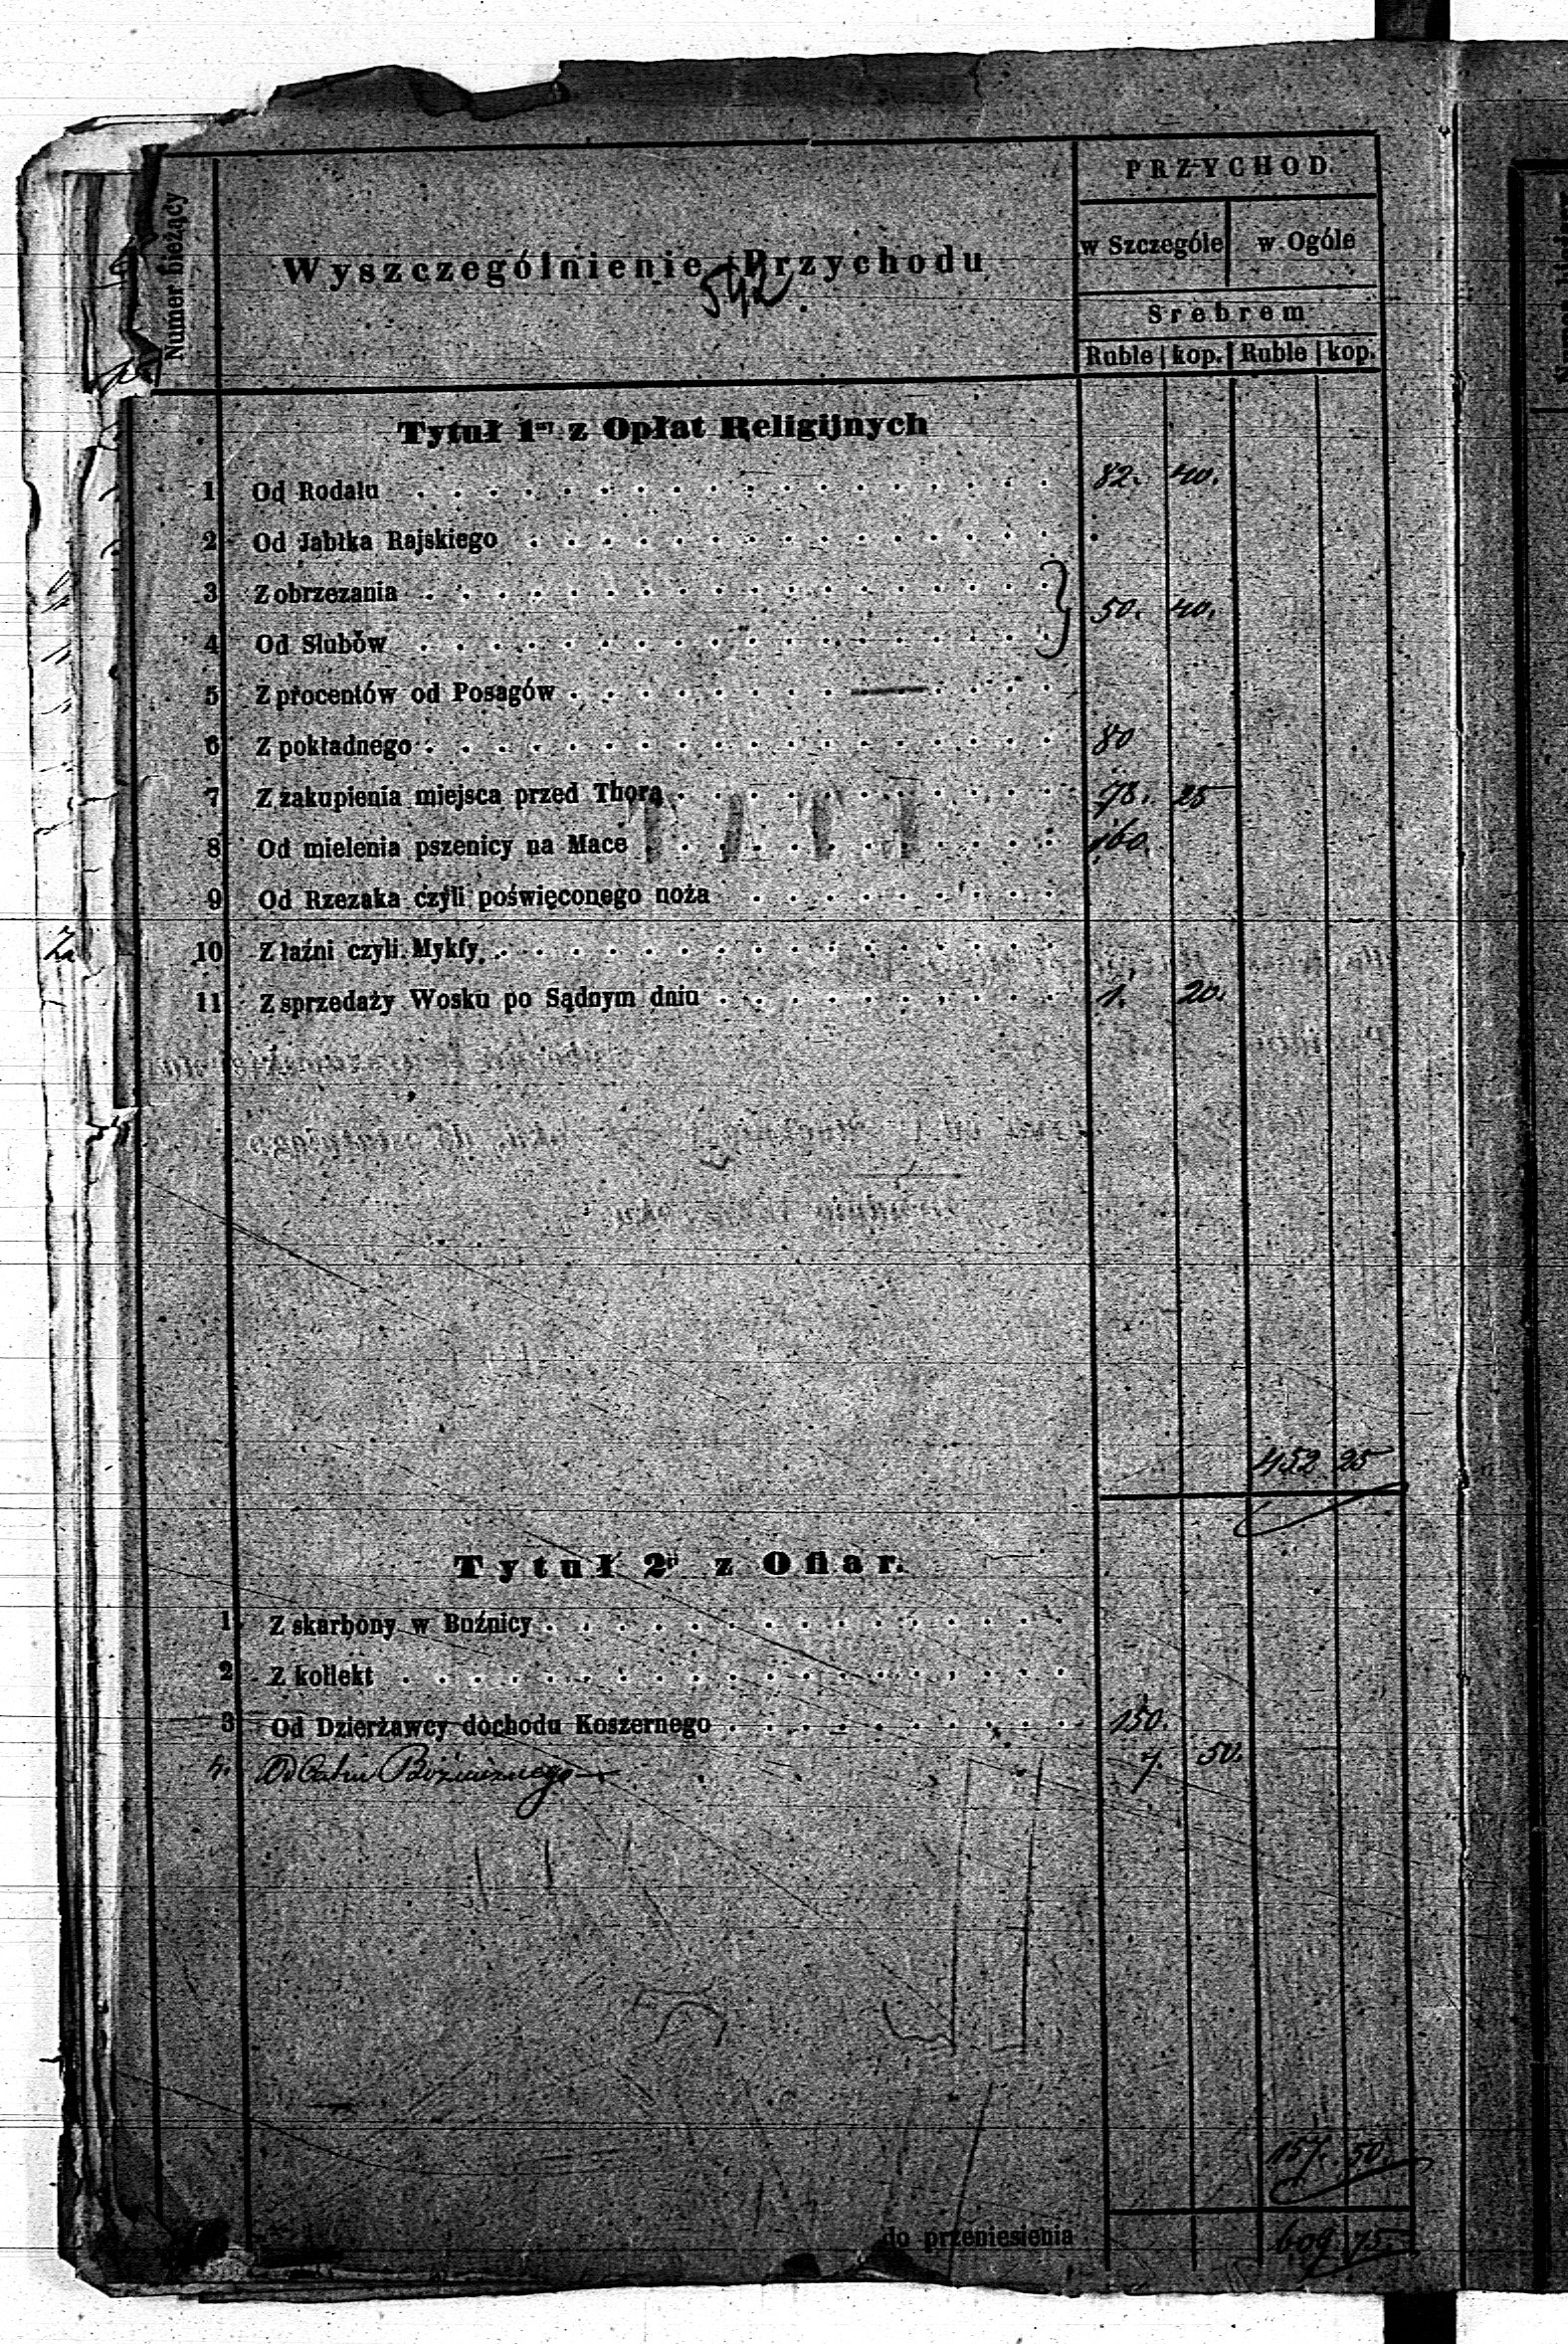 PRZYCHOD.
Numer bieżący
Wyszczególnienie Przychodu
542
w Szczególe w Ogóle
Srebrem
Ruble kop. Ruble kop.
Tytuł 1ⁿʸ z Opłat Religijnych
1 Od Rodału 82. 40.
2 Od Jabłka Rajskiego
3 Z obrzezania
} 50. 40.
4 Od Slubów
5 Z procentów od Posagów —
6 Z pokładnego 80
7 Z zakupienia miejsca przed Thorą 78. 25
8 Od mielenia pszenicy na Mace 160.
9 Od Rzezaka czyli poświęconego noża
10 Z łaźni czyli Mykfy
11 Z sprzedaży Wosku po Sądnym dniu 1. 20.
452 25
Tytuł 2ⁱ z Ofiar.
1 Z skarbony w Buźnicy
2 Z kollekt
3 Od Dzierżawcy dochodu Koszernego 150.
4. Od Bożniczego 7. 50.
157. 50.
do przeniesienia 609. 75.